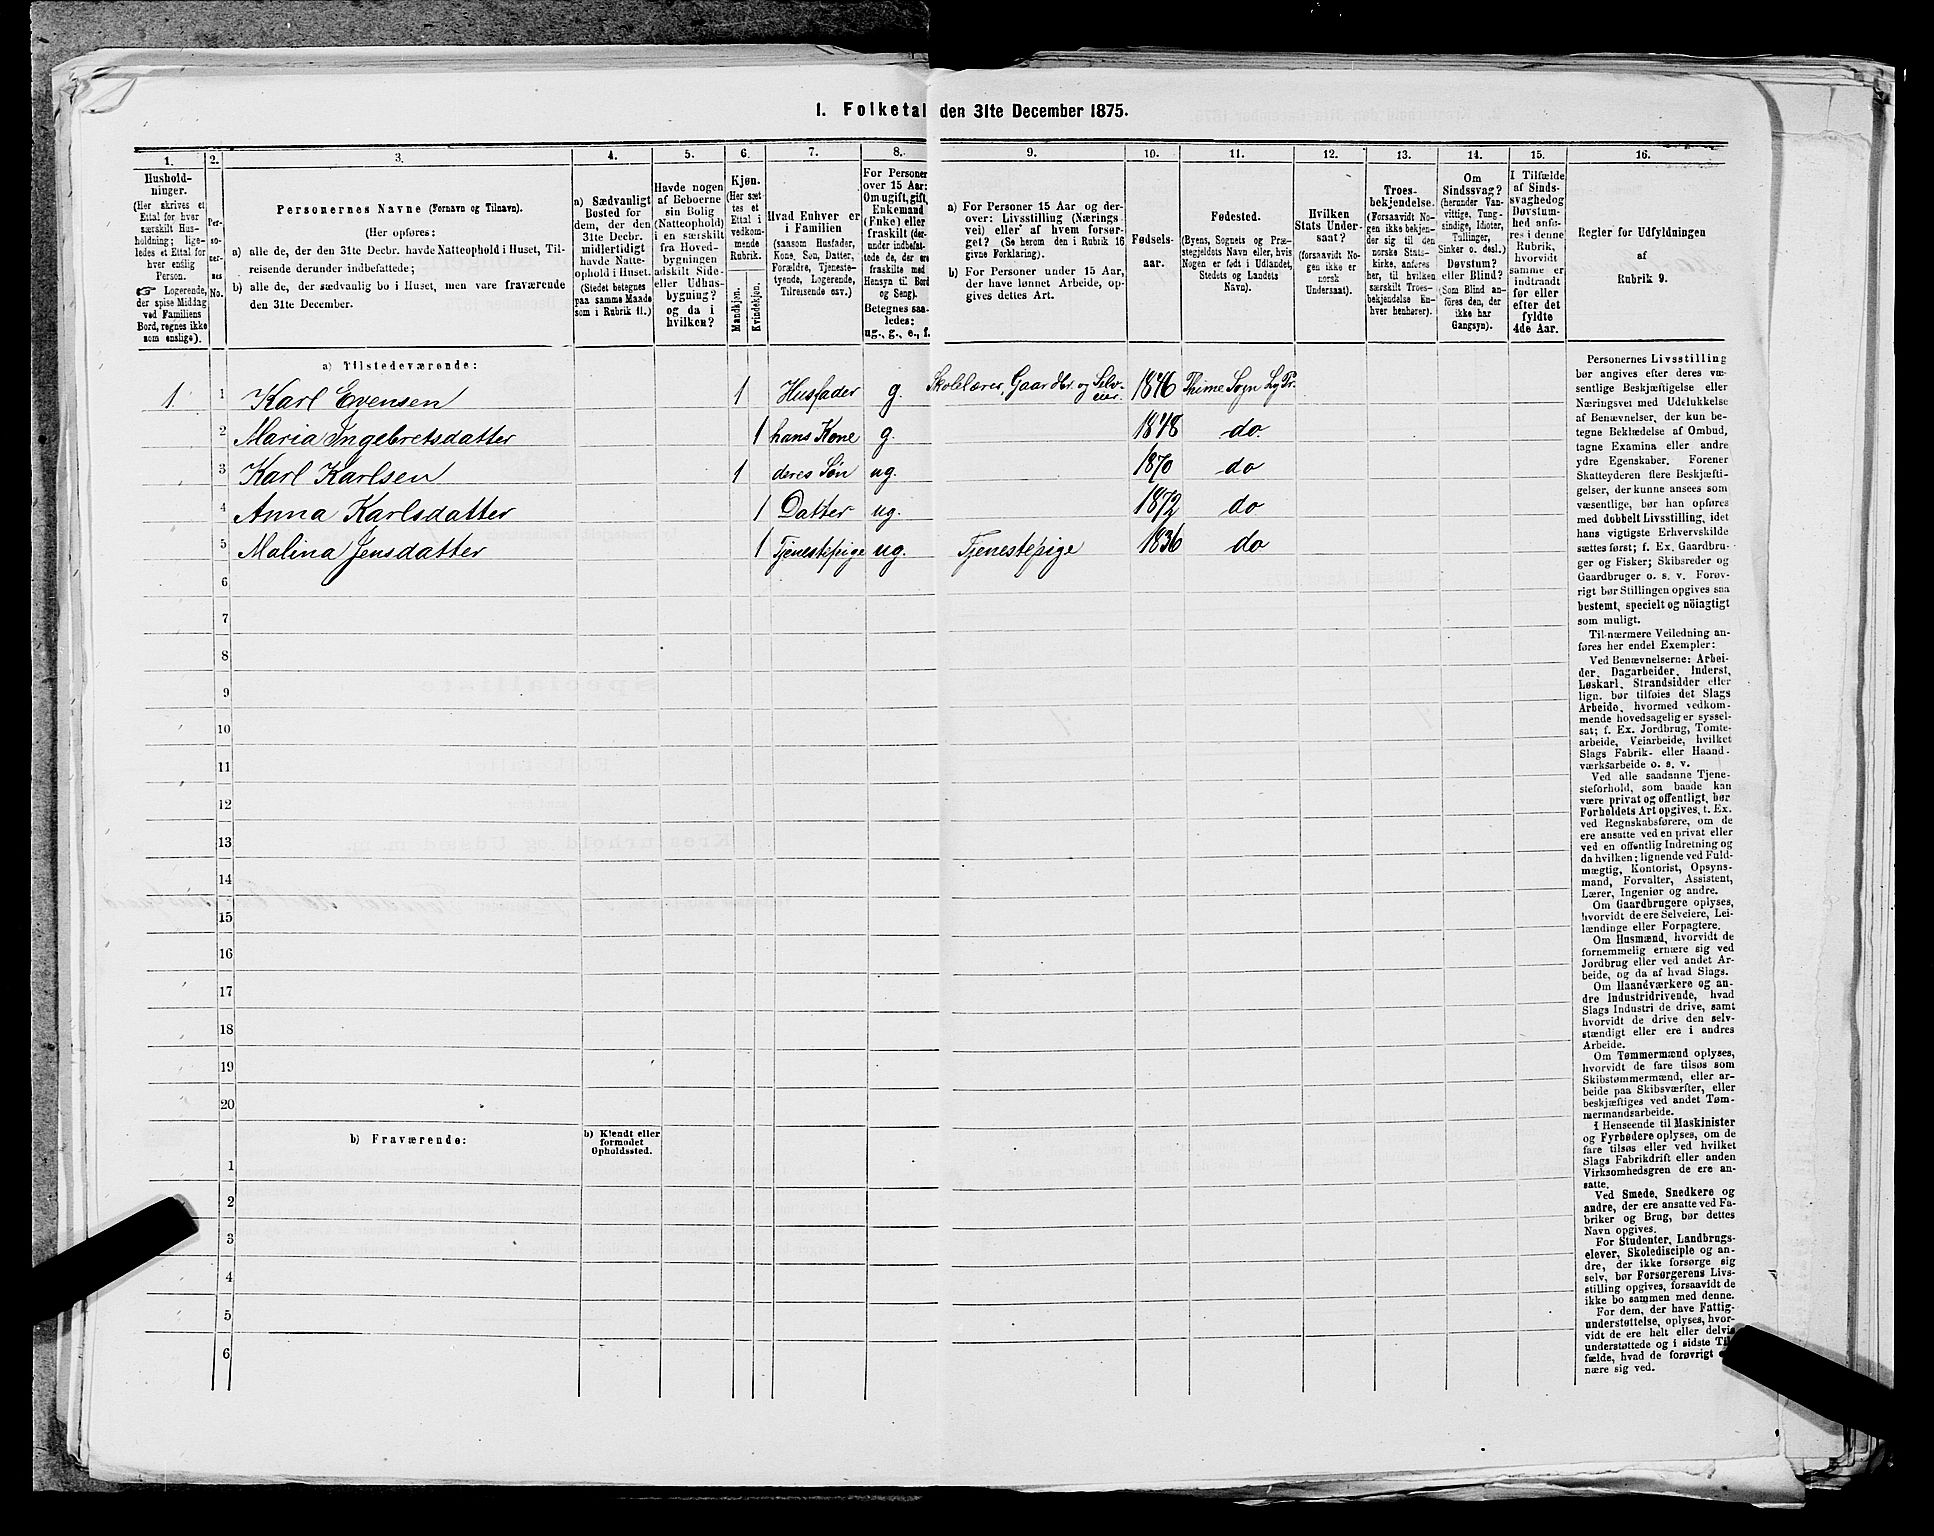 I. Folketal den 31te December 1875.
1. 2. 3. 4. 5. 6. 7. 8. 9. 10. 11. 12. 13. 14. 15. 16.
Hushold-
ninger.
(Her skrives et
Ettal for hver
særskilt Hus-
holdning; lige-
ledes et Ettal for
hver enslig
Person.
☞ Logerende,
der spise Middag
ved Familiens
Bord, regnes ikke
som enslige).
Per-
so-
ner-
nes
No.
Personernes Navne (Fornavn og Tilnavn).
(Her opføres:
a) alle de, der den 31te Decbr. havde Natteophold i Huset, Til-
reisende derunder indbefattede;
b) alle de, der sædvanlig bo i Huset, men vare fraværende
den 31te December.
a) Sædvanligt
Bosted for
dem, der den
31te Decbr.
midlertidigt
havde Natte-
ophold i Huset.
(Stedet betegnes
paa samme Maade
som i Rubrik 11.)
Havde nogen
af Beboerne
sin Bolig
(Natteophold)
i en særskilt
fra Hoved-
bygningen
adskilt Side-
eller Udhus-
bygning?
og da i
hvilken?
Kjøn.
(Her sæt-
tes et
Ettal i
vedkom-
mende
Rubrik.
Mandkjøn.
Kvindekjøn.
Hvad Enhver er
i Familien
(saasom Husfader,
Kone, Søn, Datter,
Forældre, Tjeneste-
tyende, Logerende,
Tilreisende osv.)
For Personer
over 15 Aar:
Om ugift, gift,
Enkemand
(Enke) eller
fraskilt (der-
under indbefat-
tede de, der ere
fraskilte med
Hensyn til Bord
og Seng).
Betegnes saa-
ledes:
ug., g., e., f.
a) For Personer 15 Aar og der-
over: Livsstilling (Nærings
vei) eller af hvem forsør-
get? (Se herom den i Rubrik 16
givne Forklaring).
b) For Personer under 15 Aar,
der have lønnet Arbeide, op-
gives dettes Art.
Fødsels-
aar.
Fødested.
(Byens, Sognets og Præ-
stegjeldets Navn eller, hvis
Nogen er født i Udlandet,
Stedets og Landets
Navn).
Hvilken
Stats Under-
saat?
(forsaavidt No-
gen ikke er
norsk
Undersaat).
Troes-
bekjendelse.
(Forsaavidt No-
gen ikke bekjen-
der sig til den
norske Stats-
kirke, anføres
her, til hvilken
særskilt Troes-
bekjendelse En-
hver henhører).
Om
Sindssvag?
(herunder Van-
vittige, Tung-
sindige, Idioter,
Tullinger,
Sinker o. desl.)
Døvstum?
eller Blind?
(Som Blind an-
føres den, der
ikke har
Gangsyn).
I Tilfælde
af Sinds-
svaghed og
Døvstum-
hed anfø-
res i denne
Rubrik,
hvorvidt
samme er
indtraadt
før eller
efter det
fyldte
4de Aar.
Regler for Udfyldningen
af
Rubrik 9.
a) Tilstedeværende:
1 1 Karl Evensen 1 Husfader g. Skolelærer, Gaardbr. og Selv-
eier. 1846 Thime Sogn Ly Pr.
2 Maria Ingebretsdatter 1 hans Kone g. 1848 do.
3 Karl Karlsen 1 deres Søn ug. 1870 do
4 Anna Karlsdatter 1 Datter ug. 1872 do
5 Malina Jensdatter 1 Tjenestepige ug. Tjenestepige 1836 do
6
7
8
9
10
11
12
13
14
15
16
17
18
19
20
b) Fraværende:
b) Kjendt eller
formodet
Opholdssted.
1
2
3
4
5
6
Personernes Livsstilling
bør angives efter deres væ-
sentlige Beskjæftigelse eller
Næringsvei med Udelukkelse
af Benævnelser, der kun be-
tegne Beklædelse af Ombud,
tagne Examina eller andre
ydre Egenskaber. Forener
Skatteyderen flere Beskjæfti-
gelser, der kunne ansees som
væsentlige, bør han opføres
med dobbelt Livsstilling, idet
hans vigtigste Erhvervskilde
sættes først; f. Ex. Gaardbru-
ger og Fisker; Skibsreder og
Gaardbruger o. s. v. Forøv-
rigt bør Stillingen opgives saa
bestemt, specielt og nöiagtigt
som muligt.
Til nærmere Veiledning an-
føres her endel Exempler:
Ved Benævnelserne: Arbei-
der, Dagarbeider, Inderst,
Løskarl, Strandsidder eller
lign. bør tilføies det Slags
Arbeide, hvormed vedkom-
mende hovedsagelig er syssel-
sat; f. Ex. Jordbrug, Tomte-
arbeide, Veiarbeide, hvilket
Slags Fabrik- eller Haand-
værksarbeide o. s. v.
Ved alle saadanne Tjene-
steforhold, som baade kan
være privat og offentligt, bør
Forholdets Art opgives, t. Ex.
ved Regnskabsførere, om de
ere ansatte ved en privat eller
ved en offentlig Indretning og
da hvilken; lignende ved Fuld-
mægtig, Kontorist, Opsyns-
mand, Forvalter, Assistent,
Lærer, Ingeniør og andre.
Om Gaardbrugere oplyses,
hvorvidt de ere Selveiere, Lei-
lændinge eller Forpagtere.
Om Husmænd, hvorvidt de
fornemmelig ernære sig ved
Jordbrug eller ved andet Ar-
beide, og da af hvad Slags.
Om Haandværkere og an-
dre Industridrivende, hvad
Slags Industri de drive, samt
hvorvidt de drive den selv-
stændigt eller ere i andres
Arbeide.
Om Tømmermænd oplyses,
hvorvidt de fare tilsøs som
Skibstømmermænd, eller ar-
beide paa Skibsværfter, eller
beskjæftiges ved andet Tøm-
mermandsarbeide.
I Henseende til Maskinister
og Fyrbødere oplyses, om de
fare tilsøs eller ved hvilket
Slags Fabrikdrift eller anden
Virksomhedsgren de ere an-
satte.
Ved Smede, Snedkere og
andre, der ere ansatte ved Fa-
briker og Brug, bør dettes
Navn opgives.
For Studenter, Landbrugs-
elever, Skoledisciple og an-
dre, der ikke forsørge sig
selv, bør Forsørgerens Livs-
stilling opgives, forsaavidt de
ikke bo sammen med denne.
For dem, der have Fattig-
understøttelse, oplyses, hvor-
vidt de ere helt eller delvis
understøttede og i sidste Til-
fælde, hvad de forøvrigt
nære sig ved.